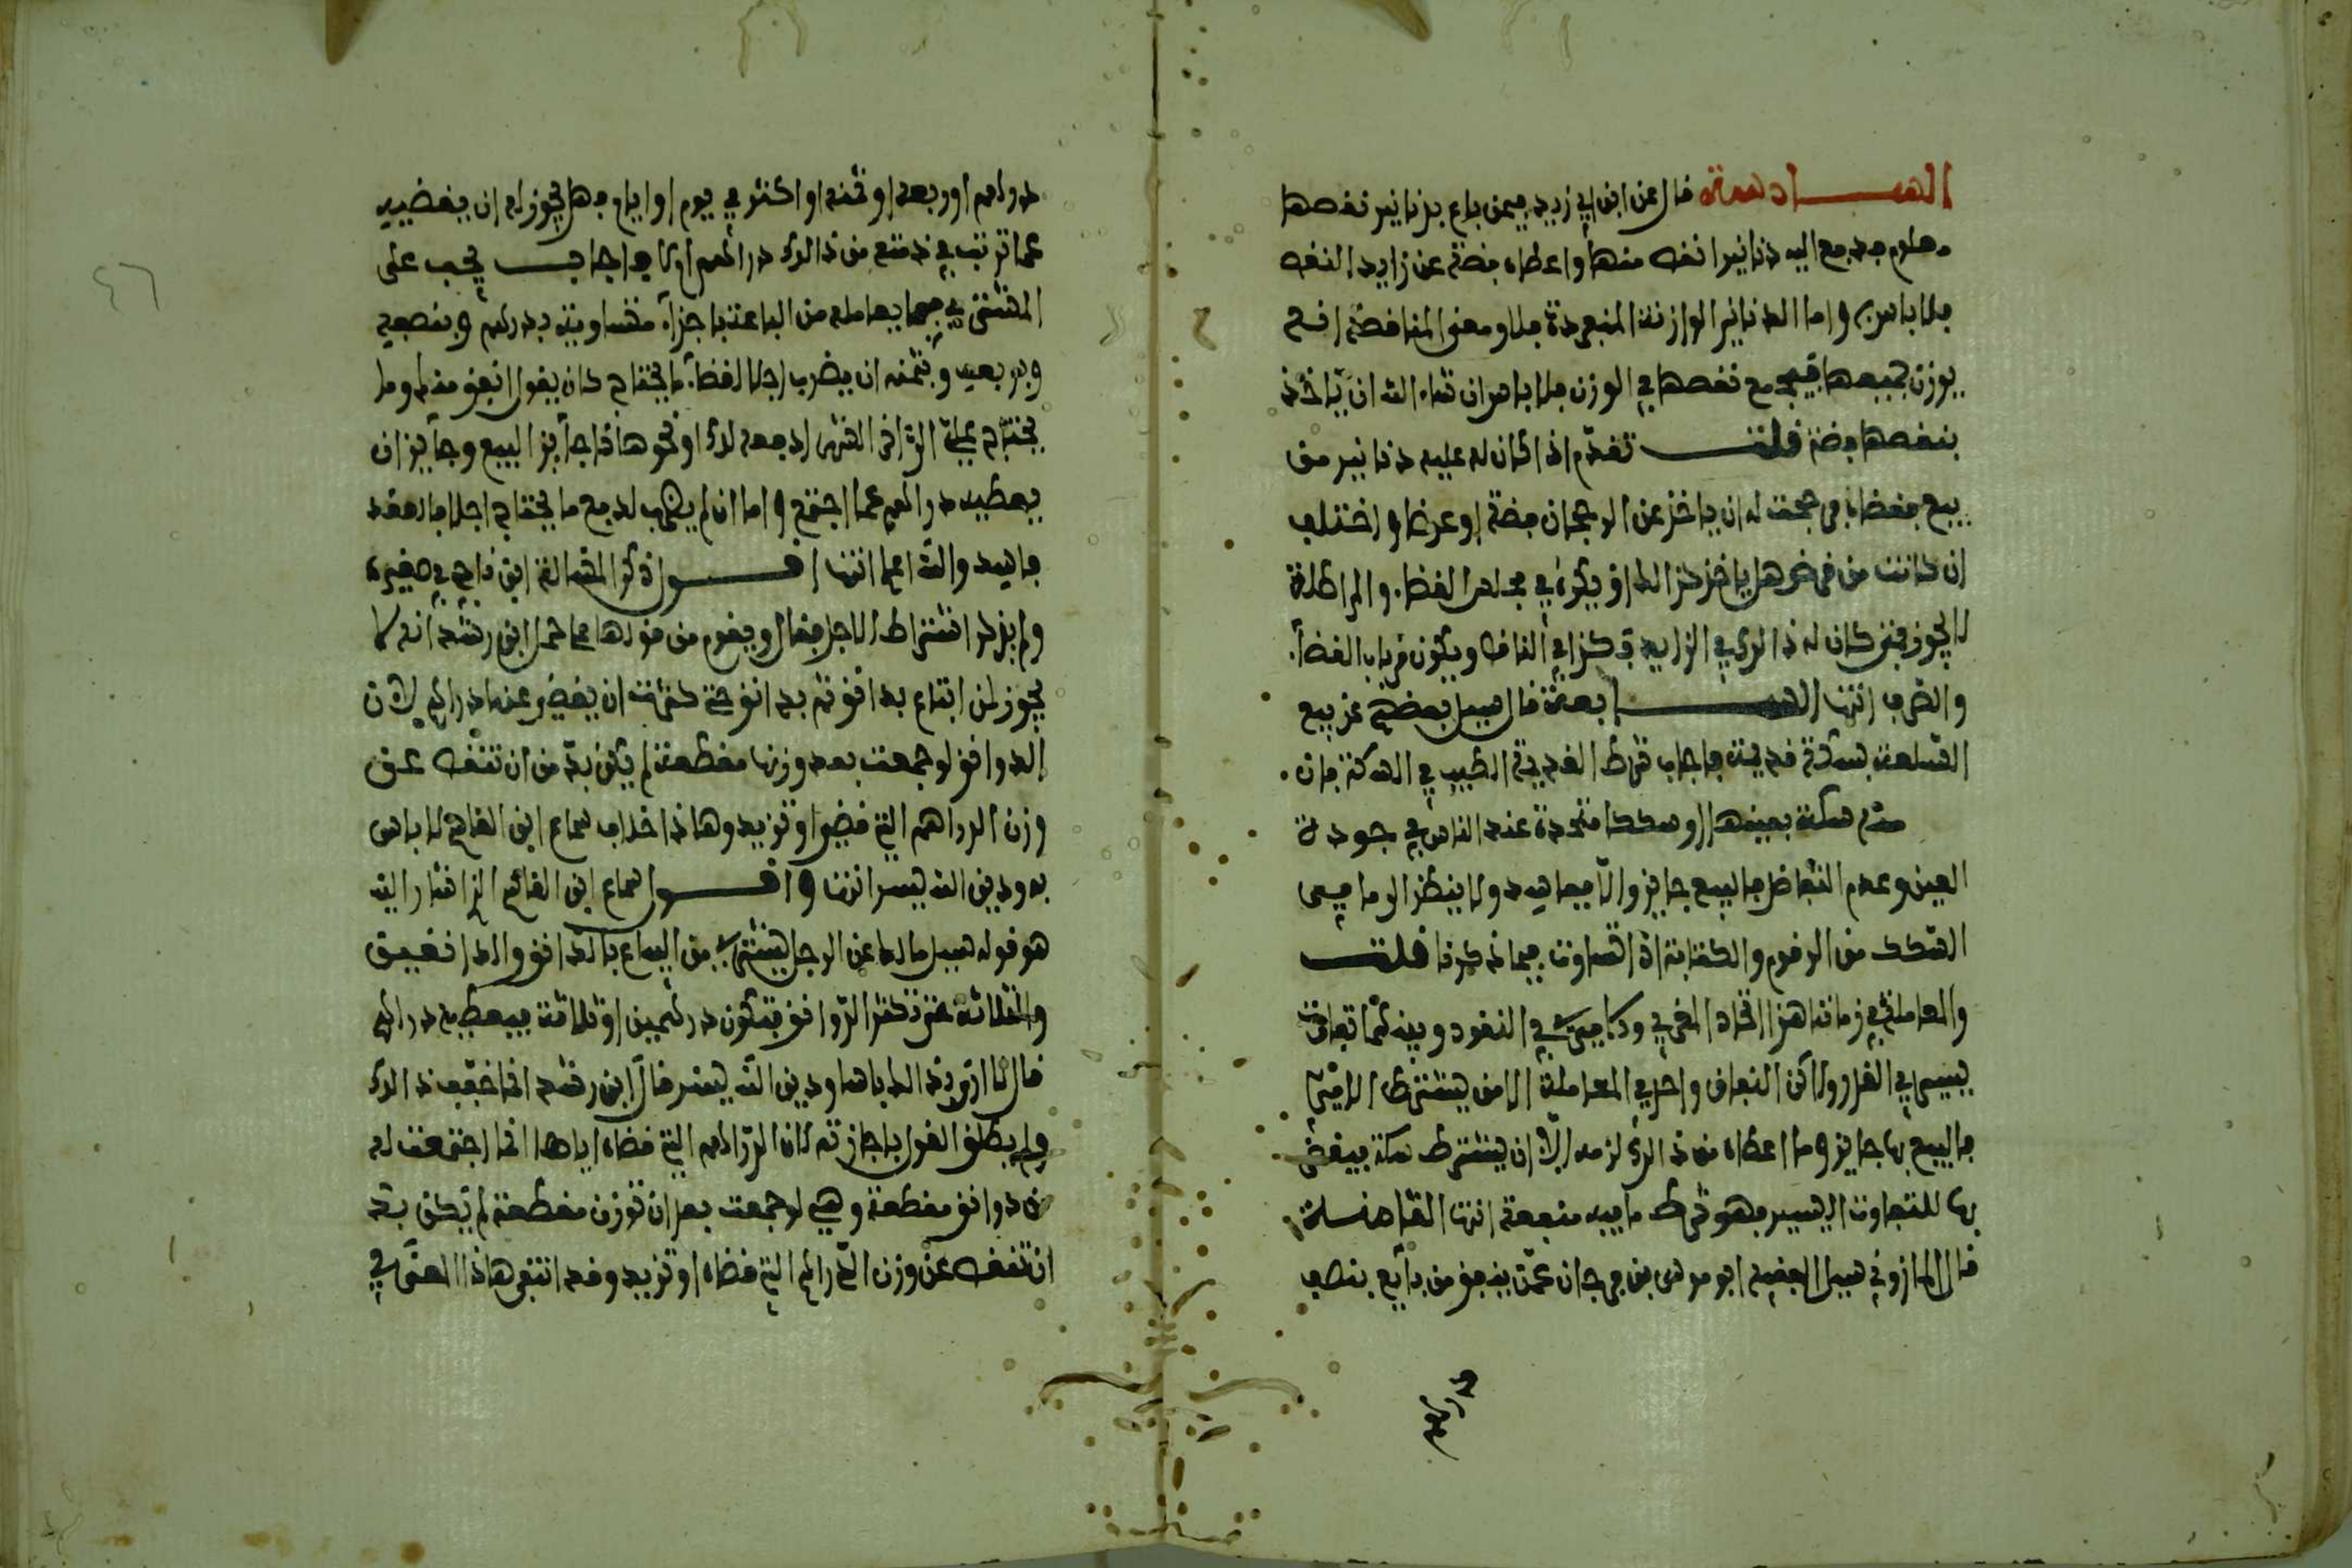 السادسة قال عن ابن ابي زيد فيمن باع بدنانير نقصها
معلوم فدفع اليه دنانير انقص منها واعطاه فضة عن زايد النقص
فلا باس به واما الدنانير الوازنة المنفردة فلا ومعنى المناقصة ان
يوزن جميعها فيجمع نقصها في الوزن فلا باس ان شاء الله ان ياخذ
بنقصها فضة قلت تقدم اذا كان له عليه دنانير من
بيع فقضاها فرجحت له ان ياخذ عن الرجحان فضة او عرضا واختلف
ان كانت من قرض هل ياخذ كذالك او يكره في مجلس القضاء والمراطلة
لا يجوز فمتى كان له ذالك في الزايد فكذا في الناقص ويكون من باب القضاء
والصرف انتهى السابعة قال سيل بعضهم عن بيع
السلعة بسكة قديمة فاجاب شرط القديمة الطيب في السكة فان
سكة بعينها او سككا متحدة عند الناس في جودة
العين وعدم التفاضل فالبيع جايز والا ففاسد ولا ينظر الى ما في
السكك من الرقوم والكتابة اذا تساوت فيما ذكرنا قلت
والمعاملة في زماننا هذا
يسير في القدر ولاكن النفاق واحد في المعاملة الا من يشترط
فالبيع بها جايز وما اعطاه من ذالك لزمه الا ان يشترط سكة فيقضى
بها للتفاوت اليسير فهو شرط ما فيه منفعة انتهى الثامنة
قال المازوني سيل الفقيه ابو موسى بن فرجان عمن ينفق من بايع بنصف
دراهم
درهم او ربعه او ثمنه او اكثر في يوم او ايام فهل يجوز له ان يقضيه
عما ترتب في ذمته من ذالك دراهم ام لا فاجاب يجب على
المشتري فيما يعامله من الباعة باجزاء متساوية بدرهم وبنصفه
وبربعه وبثمنه ان يضرب اجلا لقضاء ما يحتاج كان يقول انفق منك وما
يحتاج على الى الشهر ادفعه لك او نحو هاذا جايز البيع وجايز ان
يعطيه دراهم عما اجتمع واما ان لم يضرب لدفع ما يحتاج اجلا فالعقد
فاسد والله اعلم انتهى اقول ذكر المسالة ابن ناجي في صغيره
ولم يذكر اشتراط الاجل فقال ويقوم من قولها على ما حمل ابن رشد انه لا
يجوز لمن ابتاع بدانق ثم بدانق حتى كثرت ان يقضي عنها دراهم لان
الدوانق لو جمعت بعد وزنها مقطعة لم يكن بد من ان تنقص عن
وزن الدراهم التي قضى او تزيد وهاذا خلاف سماع ابن القاسم لا باس
به ودين الله يسر انتهى واقول سماع ابن القاسم الذي اشار اليه
هو قوله سيل مالك عن الرجل يشتري من البياع بالدانق والدانقين
والثلاثة حتى تكثر الدوانق فتكون درهمين او ثلاثة فيعطيه دراهم
قال لا ارى بذالك باسا ودين الله يسر قال ابن رشد انما خفف ذالك
ولم يطلق القول باجازته لان الدراهم التي قضاه اياها انما اجتمعت له
من دوانق مقطعة وهي لو جمعت بعد ان توزن مقطعة لم يكن بد
ان تنقص عن وزن الدراهم التي قضاه او تزيد وقد اتقى هاذا المعنى في
٤٦